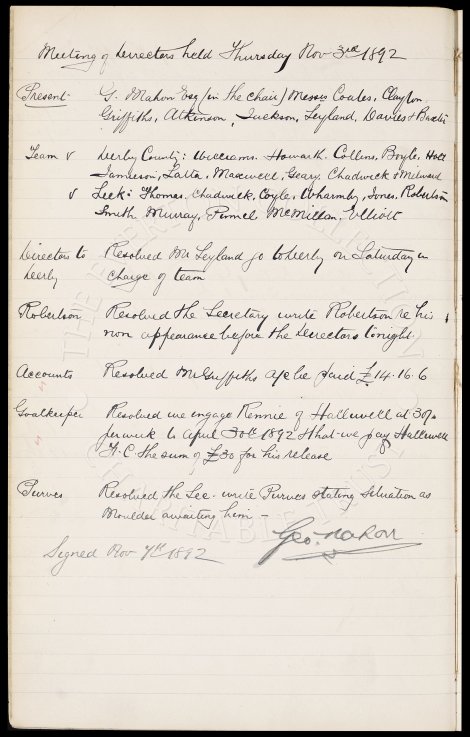 Meeting of Directors held Thursday Nov 3rd 1892
Present. G. Mahon Esq (in the chair) Messrs Coates, Clayton
Griffiths, Atkinson, Jackson, Leyland, Davies & Baxter
Team v Derby County: Williams. Howarth. Collins, Boyle, Holt
Jamieson, Latta, Maxwell, Geary, Chadwick & Milward
v Leek: Thomas, Chadwick, Coyle, Wharmby, Jones, Robertson
Smith Murray, McMillan, Elliott
Directors to Resolved Mr Leyland go to Derby on Saturday in
Derby charge of team
Robertson Resolved the Secretary write Robertson re his
non appearance before the Directors tonight.
Accounts Resolved Mr Griffiths a/c be paid £14.16.6
Goalkeeper Resolved we engage Rennie of Halliwell at 30/-
per week to April 30th 1892 that we pay Halliwell
F.C the sum of £30 for his release
Purves Resolved the Sec. write Purves stating situation as
Moulder awaiting him -
Geo. Mahon
Signed Nov 7th 1892